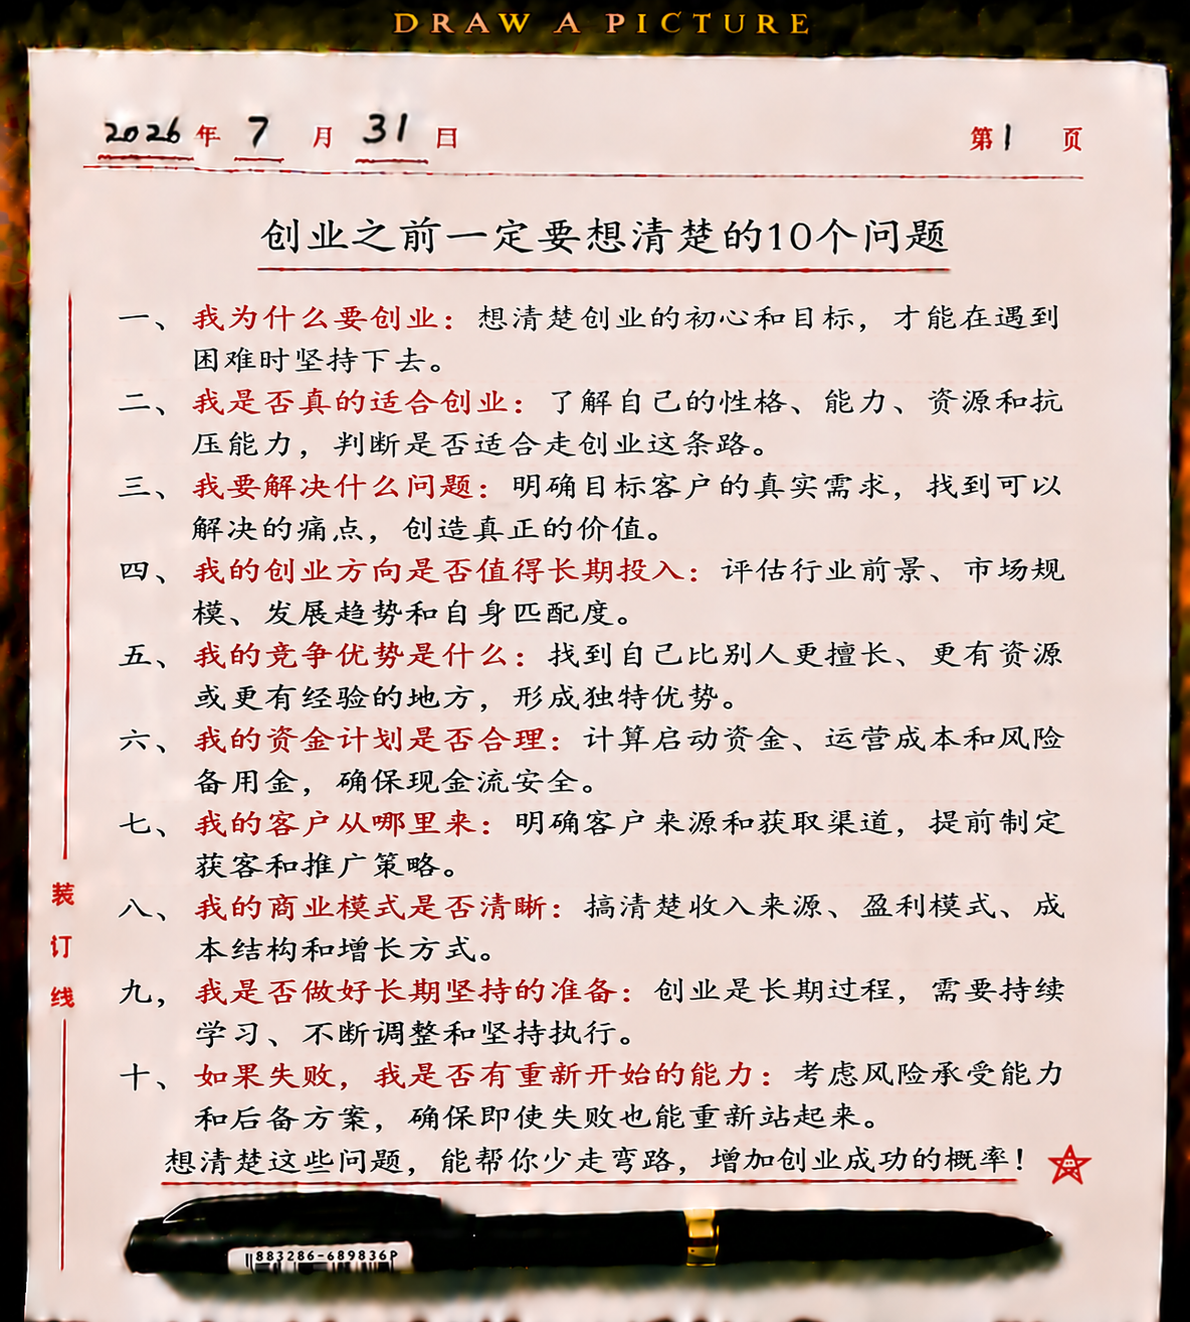 DRAW A PICTURE
2026年 7 月 31 日
第1 页
创业之前一定要想清楚的10个问题
一、我为什么要创业：想清楚创业的初心和目标，才能在遇到
困难时坚持下去。
二、我是否真的适合创业：了解自己的性格、能力、资源和抗
压能力，判断是否适合走创业这条路。
三、我要解决什么问题：明确目标客户的真实需求，找到可以
解决的痛点，创造真正的价值。
四、我的创业方向是否值得长期投入：评估行业前景、市场规
模、发展趋势和自身匹配度。
五、我的竞争优势是什么：找到自己比别人更擅长、更有资源
或更有经验的地方，形成独特优势。
六、我的资金计划是否合理：计算启动资金、运营成本和风险
备用金，确保现金流安全。
七、我的客户从哪里来：明确客户来源和获取渠道，提前制定
获客和推广策略。
八、我的商业模式是否清晰：搞清楚收入来源、盈利模式、成
本结构和增长方式。
九，我是否做好长期坚持的准备：创业是长期过程，需要持续
学习、不断调整和坚持执行。
十、如果失败，我是否有重新开始的能力：考虑风险承受能力
和后备方案，确保即使失败也能重新站起来。
想清楚这些问题，能帮你少走弯路，增加创业成功的概率！
装订线
883286-689836P